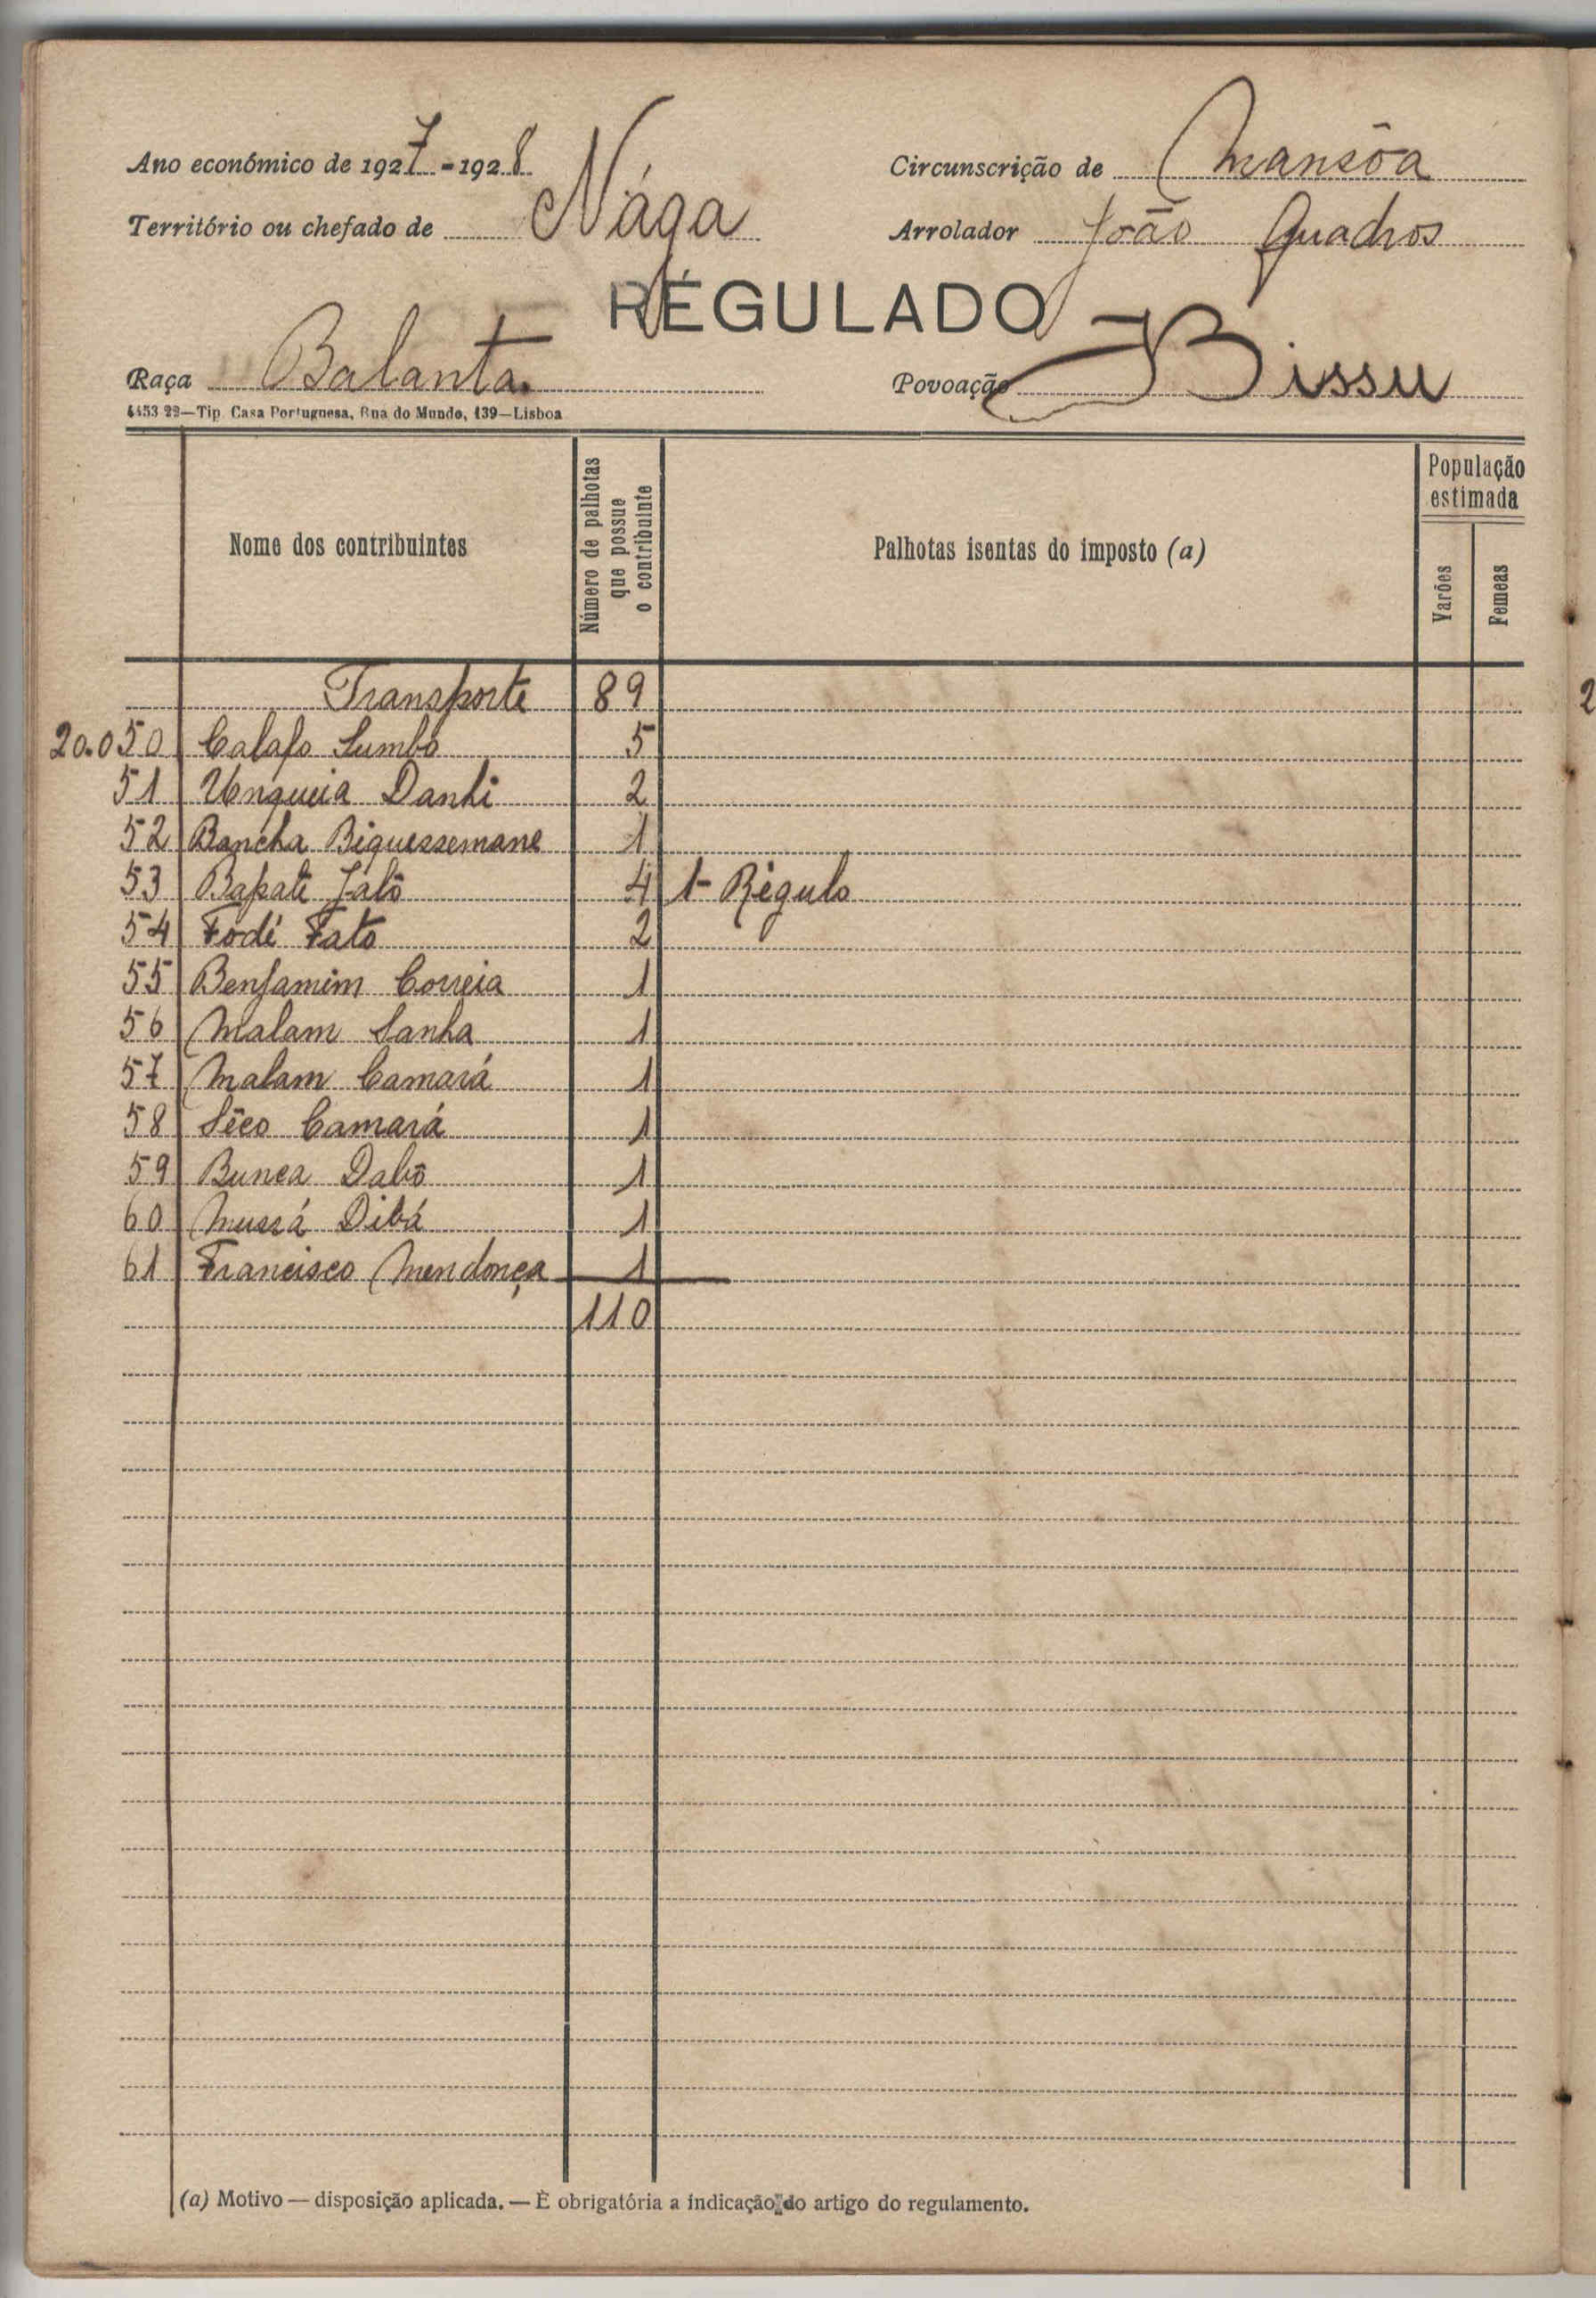 Ano económico de 1927-1928
Circunscrição de Mansôa
Território ou chefado de Nága
Arrolador João Quadros
RÉGULADO
Raça Balanta.
Povoação Bissu
4453 22—Tip. Casa Portuguesa, Rua do Mundo, 139—Lisboa
Nome dos contribuintes
Número de palhotas que possue o contribuinte
Palhotas isentas do imposto (a)
População estimada
Varões
Femeas
Transporte 89
20.050 Calafo Sumbo 5
51 Unqueia Danhi 2
52 Bancha Biquessemane 1
53 Bapate Jalô 4 1- Règulo
54 Fodé Fato 2
55 Benjamim Correia 1
56 Malam Sanha 1
57 Malam Camará 1
58 Sêco Camará 1
59 Bunca Dabô 1
60 Mussá Dibá 1
61 Francisco Mendonça 1
110
(a) Motivo — disposição aplicada. — È obrigatória a indicação do artigo do regulamento.